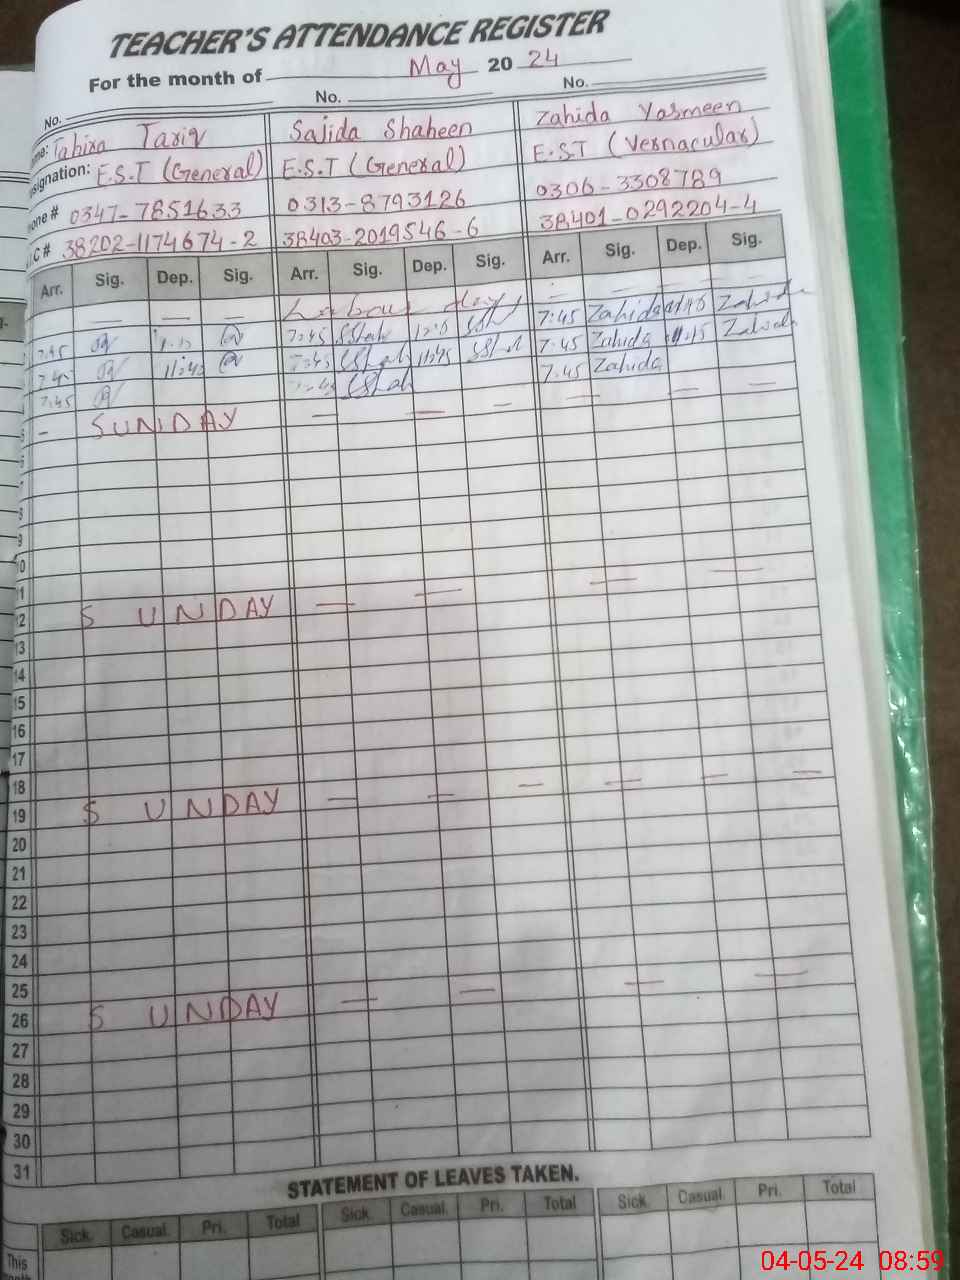 TEACHER'S ATTENDANCE REGISTER
For the month of May 20 24
No. No. No.
Tahira Tariq Sajida Shaheen Zahida Yasmeen
signation: E.S.T (General) E.S.T (General) E.S.T (Vernacular)
one # 0347-7851633 0313-8793126 0306-3308789
C # 38202-1174674-2 38403-2019546-6 38401-0292204-4
Arr. Sig. Dep. Sig. Arr. Sig. Dep. Sig. Arr. Sig. Dep. Sig.
— — — — Labour day — — — —
7:45 7:45 SShah SSh 7:45 Zahida Zahida
7:45 11:45 SShah 11:45 SShah 7:45 Zahida 11:45 Zahida
7:45 SShah 7:45 Zahida
5 — SUNDAY — — — — — —
6
7
8
9
10
11
12 SUNDAY — — — —
13
14
15
16
17
18
19 SUNDAY — — — — — —
20
21
22
23
24
25
26 SUNDAY — — — —
27
28
29
30
31
STATEMENT OF LEAVES TAKEN.
Sick. Casual. Pri. Total Sick. Casual. Pri. Total Sick. Casual. Pri. Total
This
04-05-24 08:59